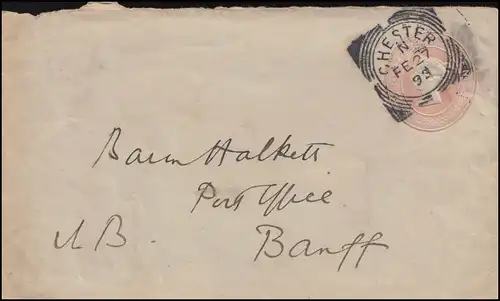 CHESTER
N
FE 27
93
Baron Halkett
Post Office
N.B. Banff